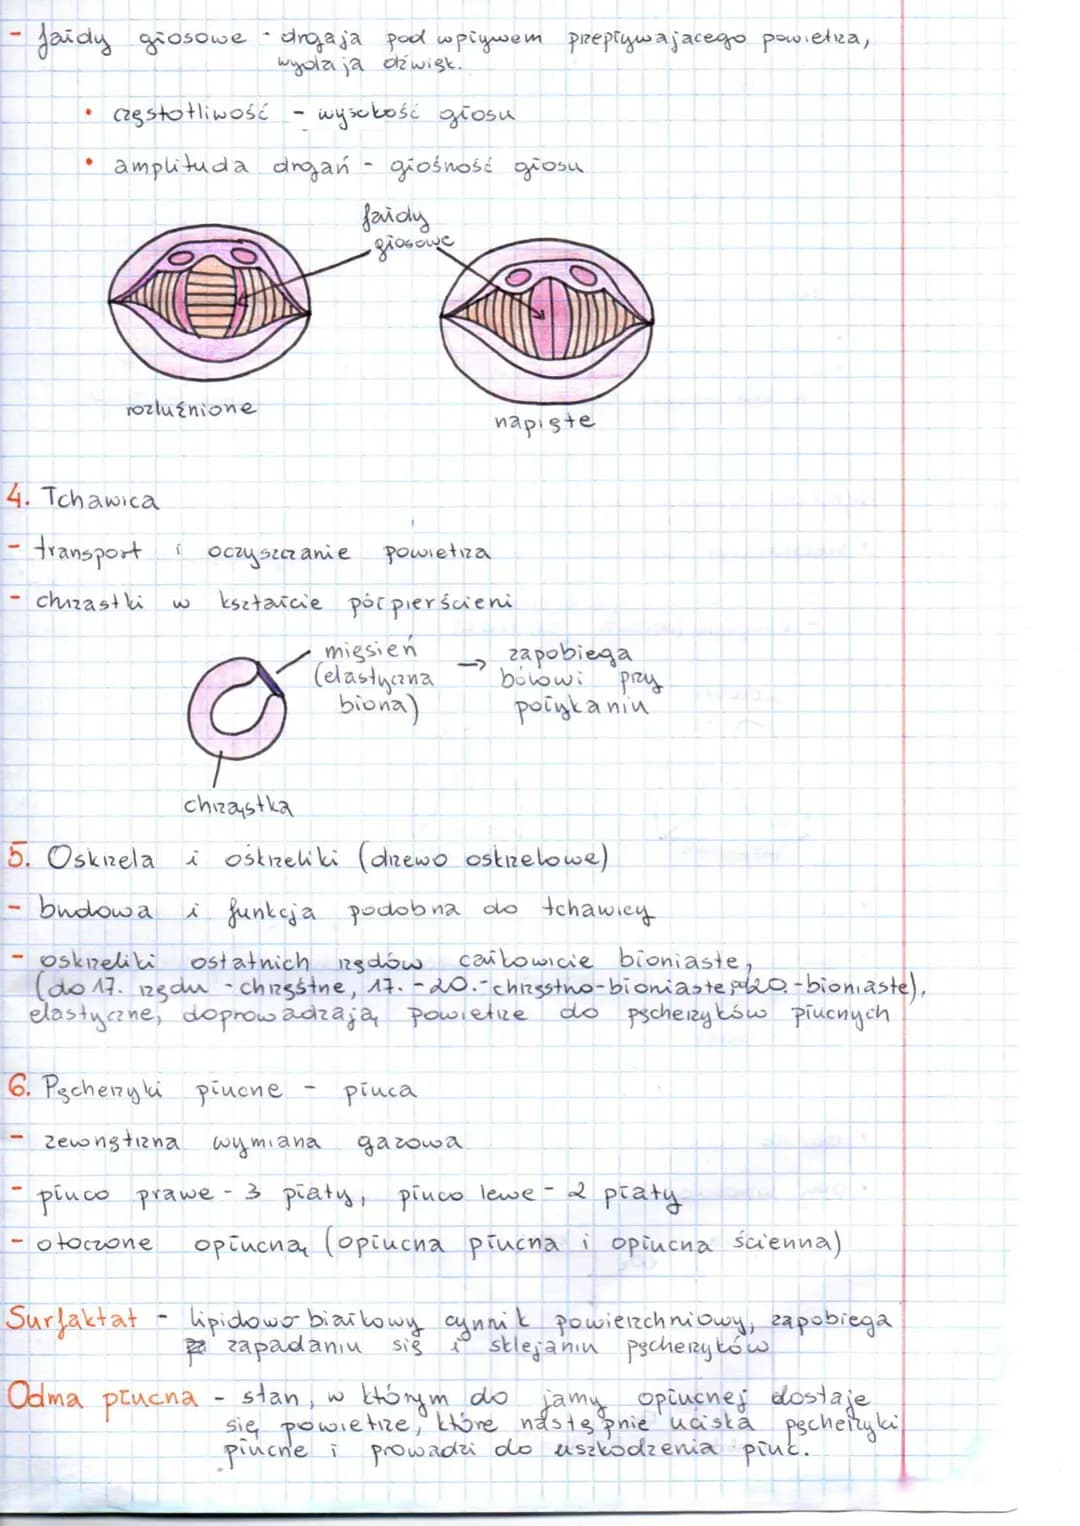 - fałdy głosowe - drgają pod wpływem przepływającego powietrza,
wydają dźwięk.
• częstotliwość - wysokość głosu
• amplituda drgań - głośność głosu
fałdy
głosowe
rozluźnione
napięte
4. Tchawica
- transport i oczyszczanie powietrza
- chrząstki w kształcie półpierścieni
mięsień → zapobiega
(elastyczna bólowi przy
błona) połykaniu
chrząstka
5. Oskrzela i oskrzeliki (drzewo oskrzelowe)
- budowa i funkcja podobna do tchawicy
- oskrzeliki ostatnich rzędów całkowicie błoniaste,
(do 17. rzędu - chrzęstne, 17. - 20. - chrzęstno-błoniaste, od 20. - błoniaste),
elastyczne, doprowadzają powietrze do pęcherzyków płucnych
6. Pęcherzyki płucne - płuca
- zewnętrzna wymiana gazowa
- płuco prawe - 3 płaty, płuco lewe - 2 płaty
- otoczone opłucną (opłucna płucna i opłucna ścienna)
Surfaktat - lipidowo-białkowy cynnik powierzchniowy, zapobiega
zapadaniu się i sklejaniu pęcherzyków
Odma płucna - stan, w którym do jamy opłucnej dostaje
się powietrze, które następnie uciska pęcherzyki
płucne i prowadzi do uszkodzenia płuc.